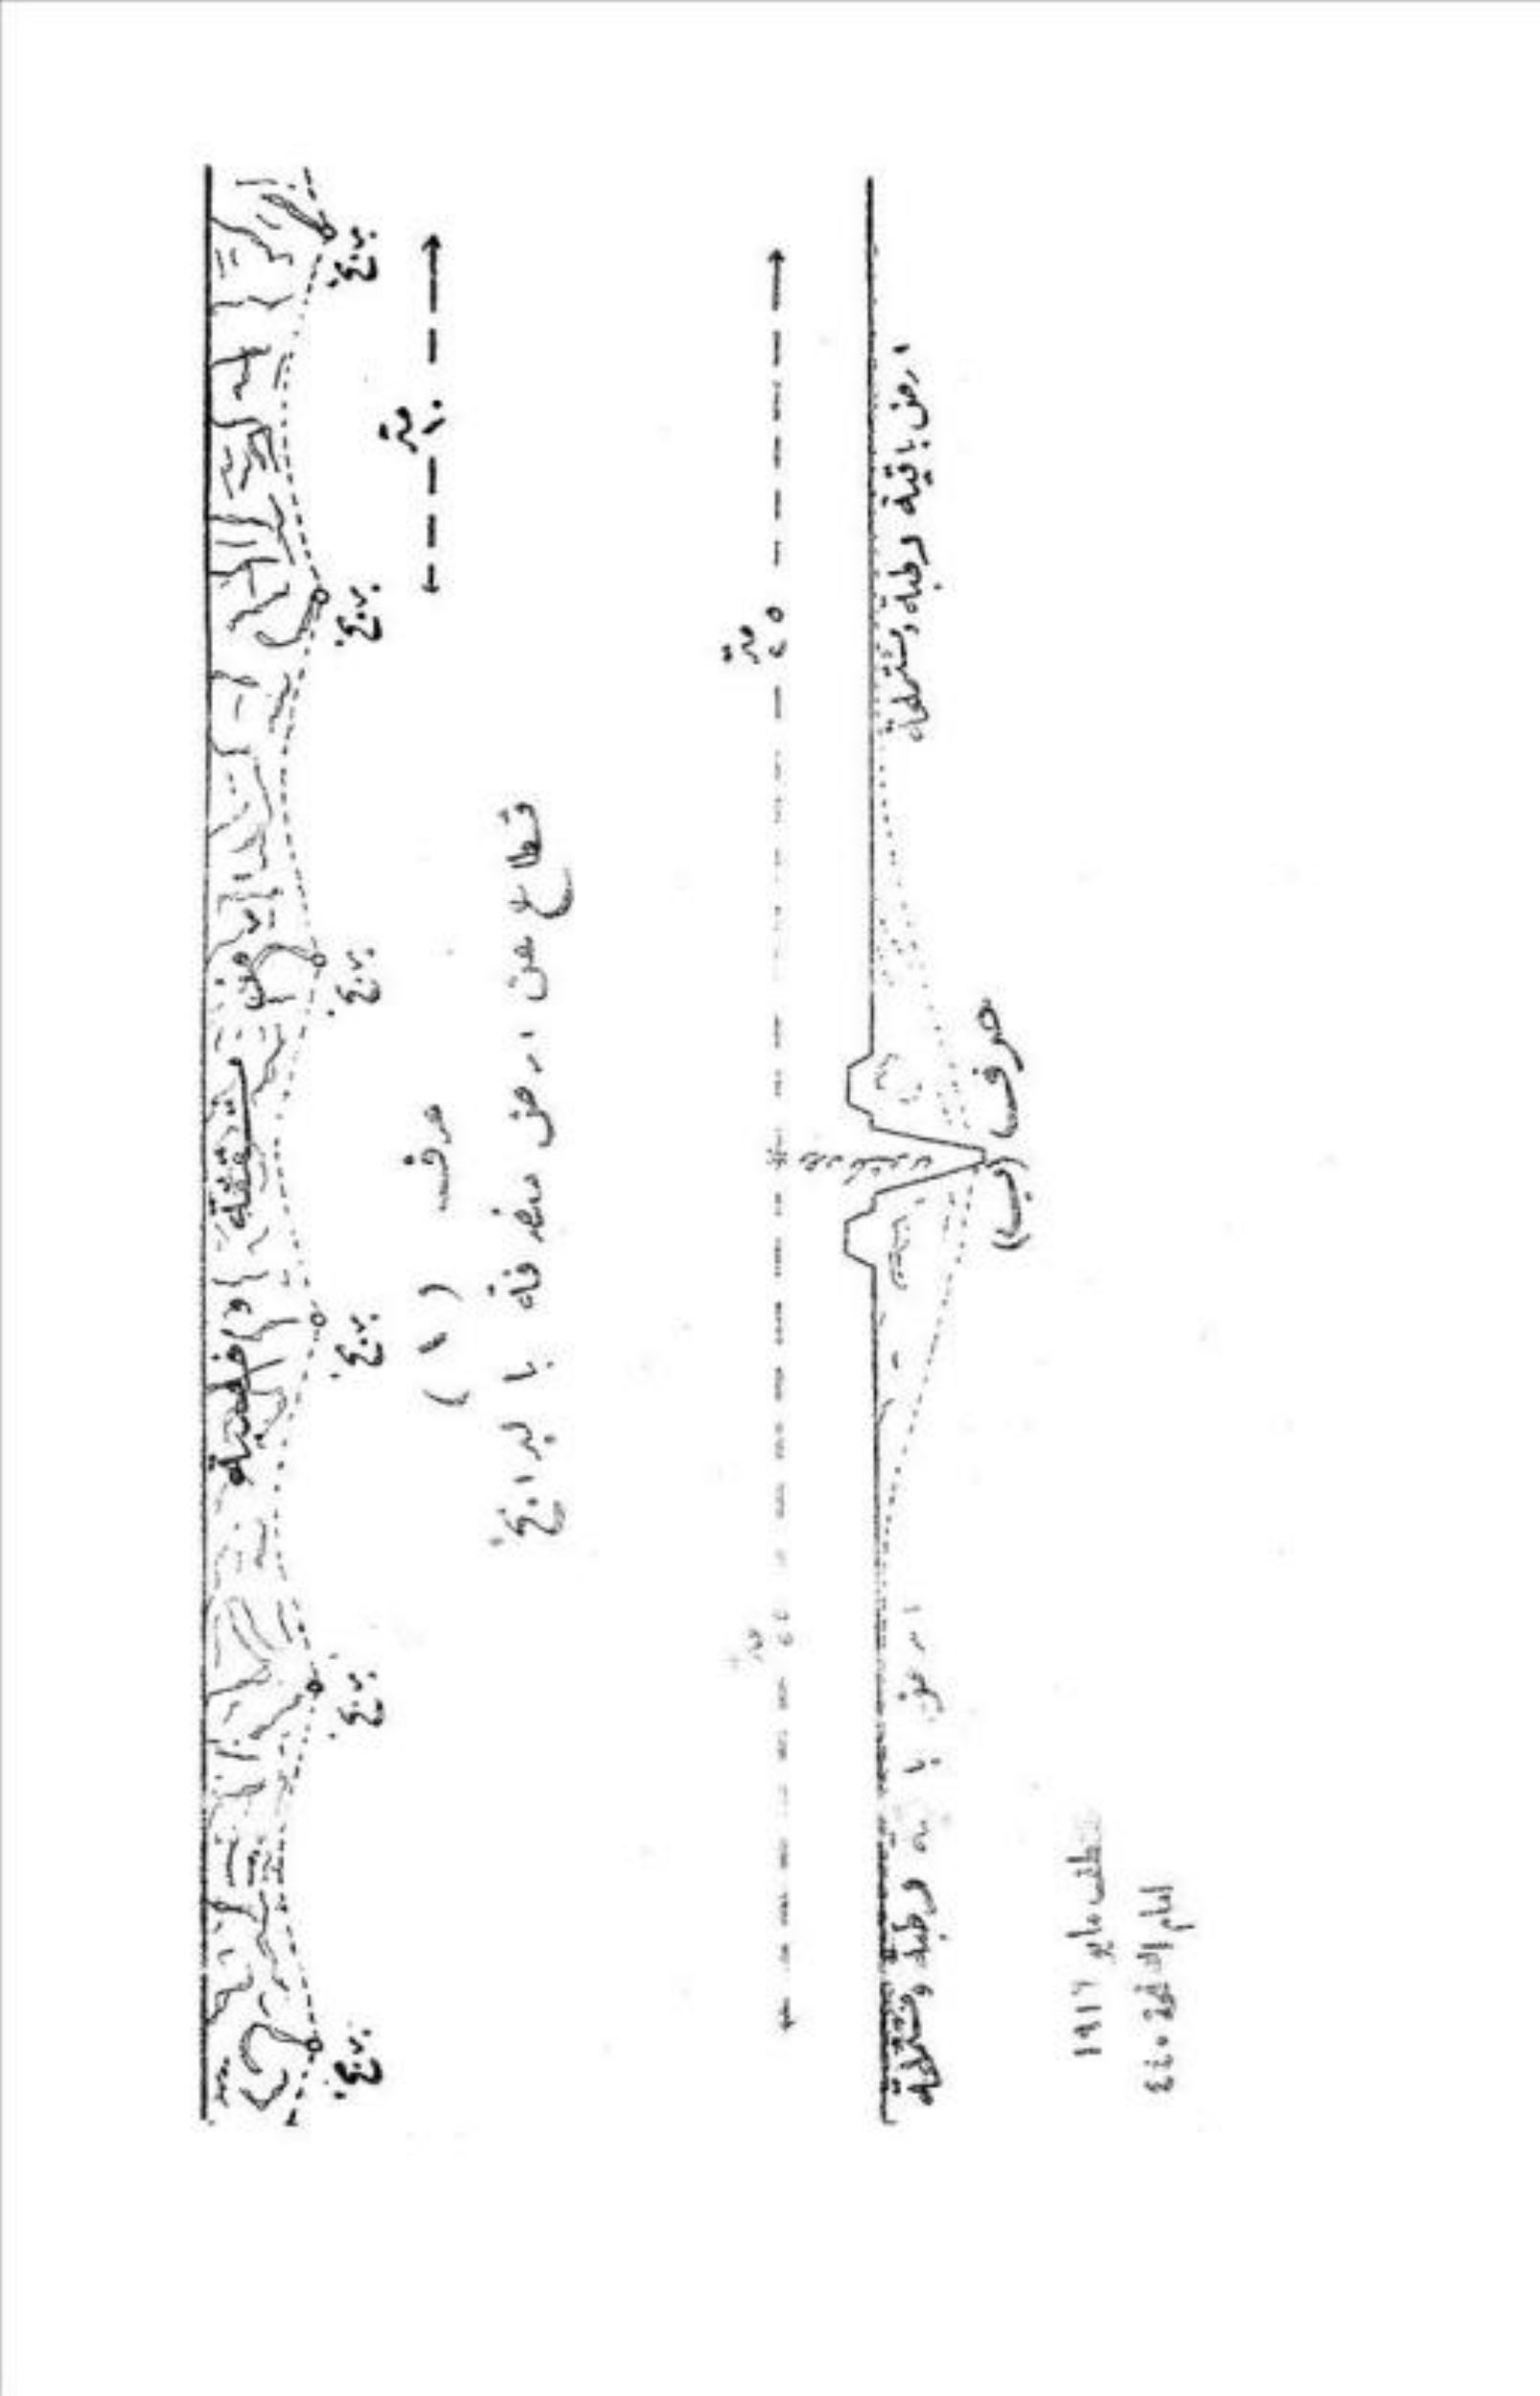 متشققة
بربخ بربخ بربخ بربخ بربخ بربخ
١٠ متر
حرف (١)
قطاع من ارض منصرفة بالبرابخ
٢٥ متر
٢٥ متر
ارض باقية رطبة ومتملحة
ارض باقية رطبة ومتملحة
حرف (ب)
مقتطف مايو ١٩١٦
امام الصفحة ٤٤٠